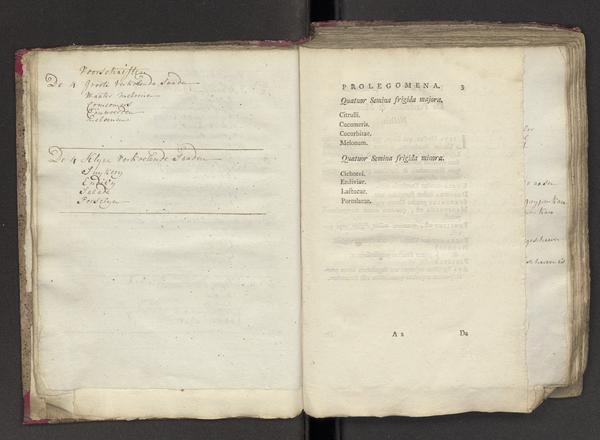 Voorschriften
De 4 groote Verkoelende Zaaden
Water meloenen
Comcomers
Cauwoerden
Meloenen
De 4 kleyne Verkoelende Zaaden
Endivy
Salade
Porseleyn
PROLEGOMENA. 3
Quatuor Semina frigida majora.
Citrulli.
Cucumeris.
Cucurbitae.
Melonum.
Quatuor Semina frigida minora.
Cichorei.
Endiviae.
Lactucae.
Portulacae.
A 2 Da